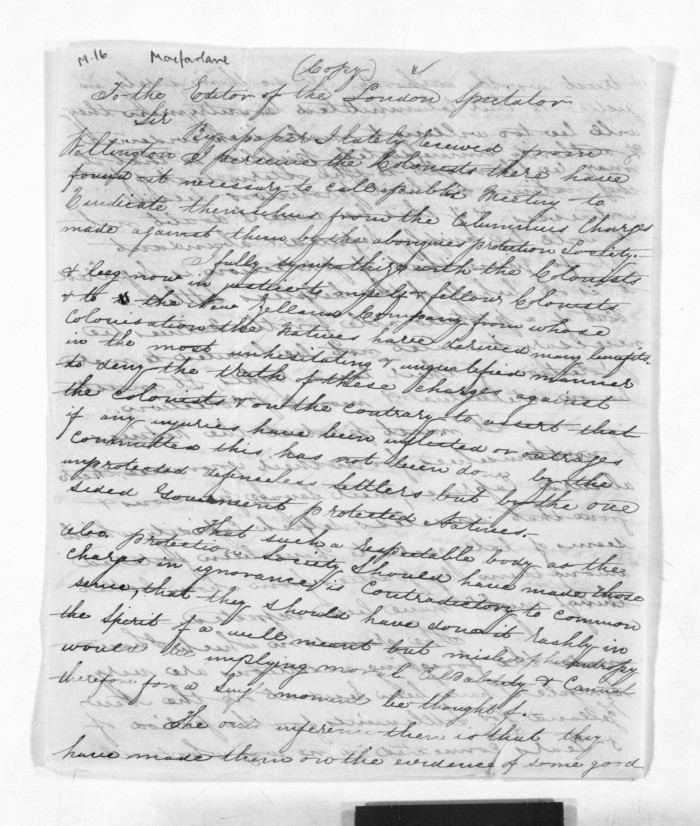 M.16 Macfarlane
(Copy)
To the Editor of the London Spectator
Sir
By a paper I lately received from
Wellington I perceive the Colonists there have
found it necessary to call a public Meeting to
Vindicate themselves from the Calumnious Charges
made against them by the aborigines protection Society.—
I fully sympathize with the Colonists
& beg now in justice to myself & fellow Colonists
& to the New Zealand Company from whose
Colonisation the Natives have derived many benefits.
in the most unhesitating & unqualified manner
to deny the truth of these Charges against
the Colonists & on the Contrary to assert that
if any injuries have been inflicted or outrages
Committed this has not been do by the
unprotected defenceless settlers but by the one
sided Government protected Natives.—
That such a respectable body as the
abo. protection Society should have made those
Charges in ignorance is Contradictory to Common
sense, that they should have done it rashly in
the Spirit of a well meant but misled philanthropy
would be implying moral & Cannot
therefore for a single moment be thought of.—
The only inference then is that they
have made them on the evidence of some good